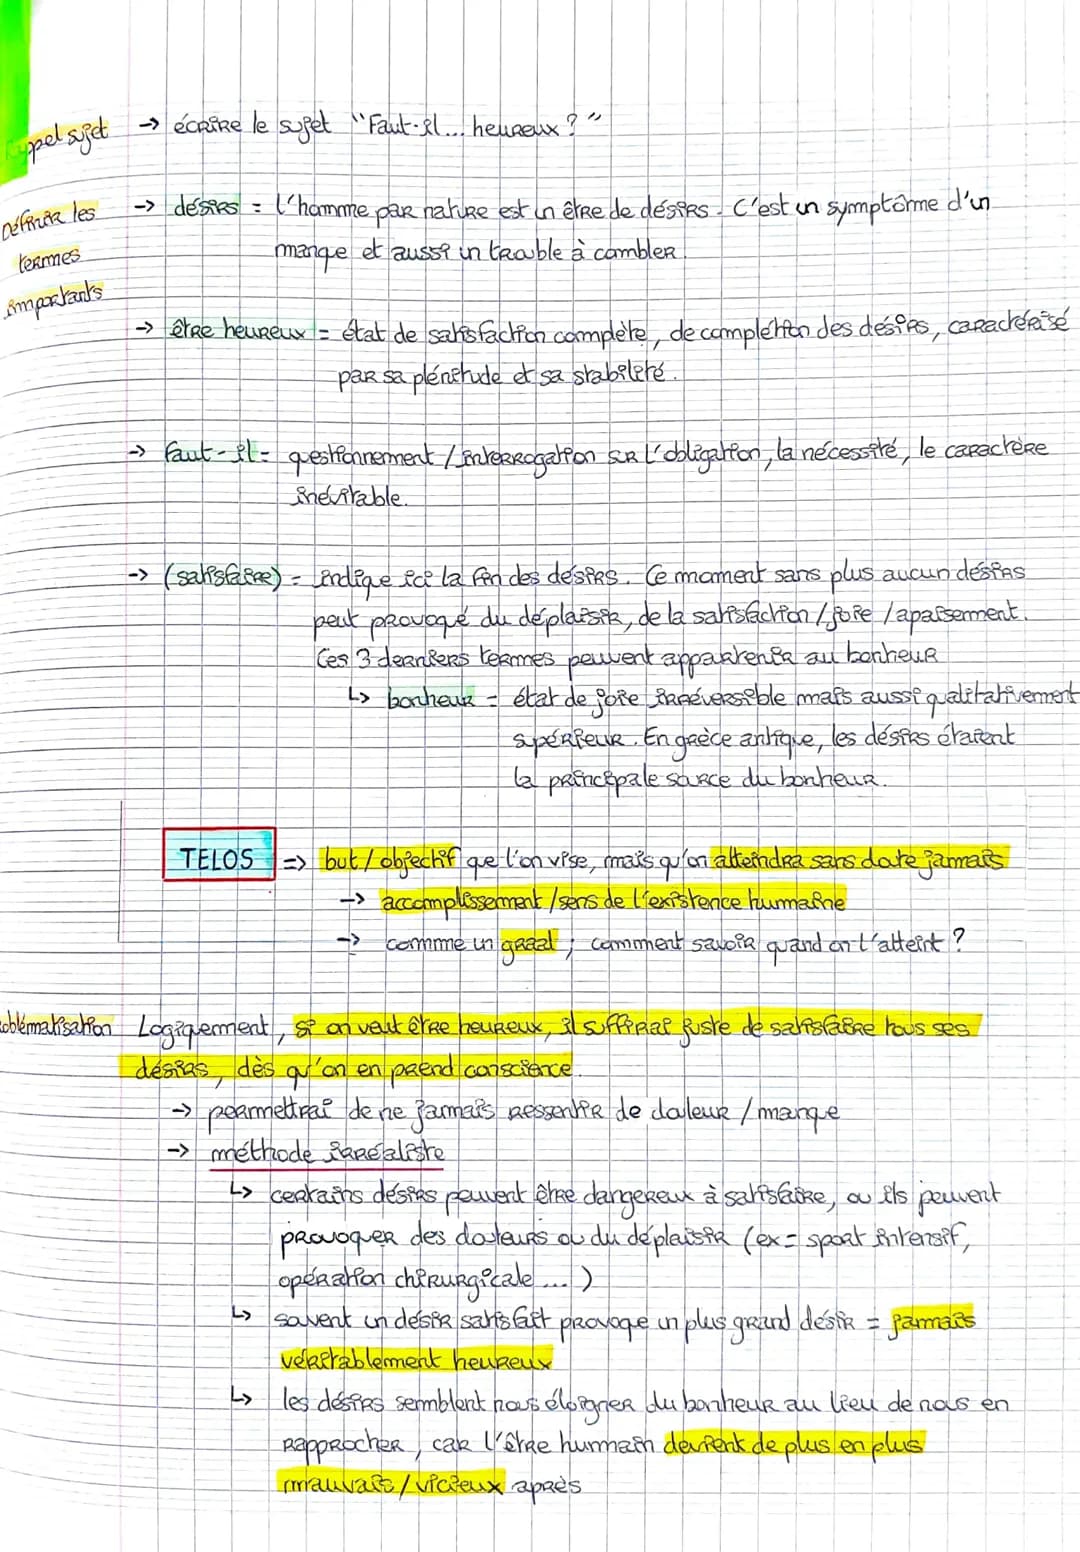 Rappel sujet → écrire le sujet "Faut-il... heureux ? "
Définir les → désirs = l'homme par nature est un être de désirs. C'est un symptôme d'un
termes
manque et aussi un trouble à combler.
importants
→ être heureux = état de satisfaction complète, de complétion des désirs, caractérisé
par sa plénitude et sa stabilité.
→ faut-il = questionnement / interrogation sur l'obligation, la nécessité, le caractère
inévitable.
→ (satisfaire) = indique ici la fin des désirs. Ce moment sans plus aucun désirs
peut provoqué du déplaisir, de la satisfaction / joie / apaisement.
Ces 3 derniers termes peuvent appartenir au bonheur
↳ bonheur = état de joie irréversible mais aussi qualitativement
supérieur. En grèce antique, les désirs étaient
la principale source du bonheur.
TELOS => but / objectif que l'on vise, mais qu'on atteindra sans doute jamais
→ accomplissement / sens de l'existence humaine
→ comme un graal ; comment savoir quand on l'atteint ?
problématisation Logiquement, si on veut être heureux, il suffirai juste de satisfaire tous ses
désirs, dès qu'on en prend conscience.
→ permettrai de ne jamais ressentir de douleur / manque
→ méthode irréaliste
↳ certains désirs peuvent être dangereux à satisfaire, ou ils peuvent
provoquer des douleurs ou du déplaisir (ex = sport intensif,
opération chirurgicale ... )
↳ souvent un désir satisfait provoque un plus grand désir = jamais
véritablement heureux
↳ les désirs semblent nous éloigner du bonheur au lieu de nous en
rapprocher, car l'être humain devient de plus en plus
mauvais / vicieux après